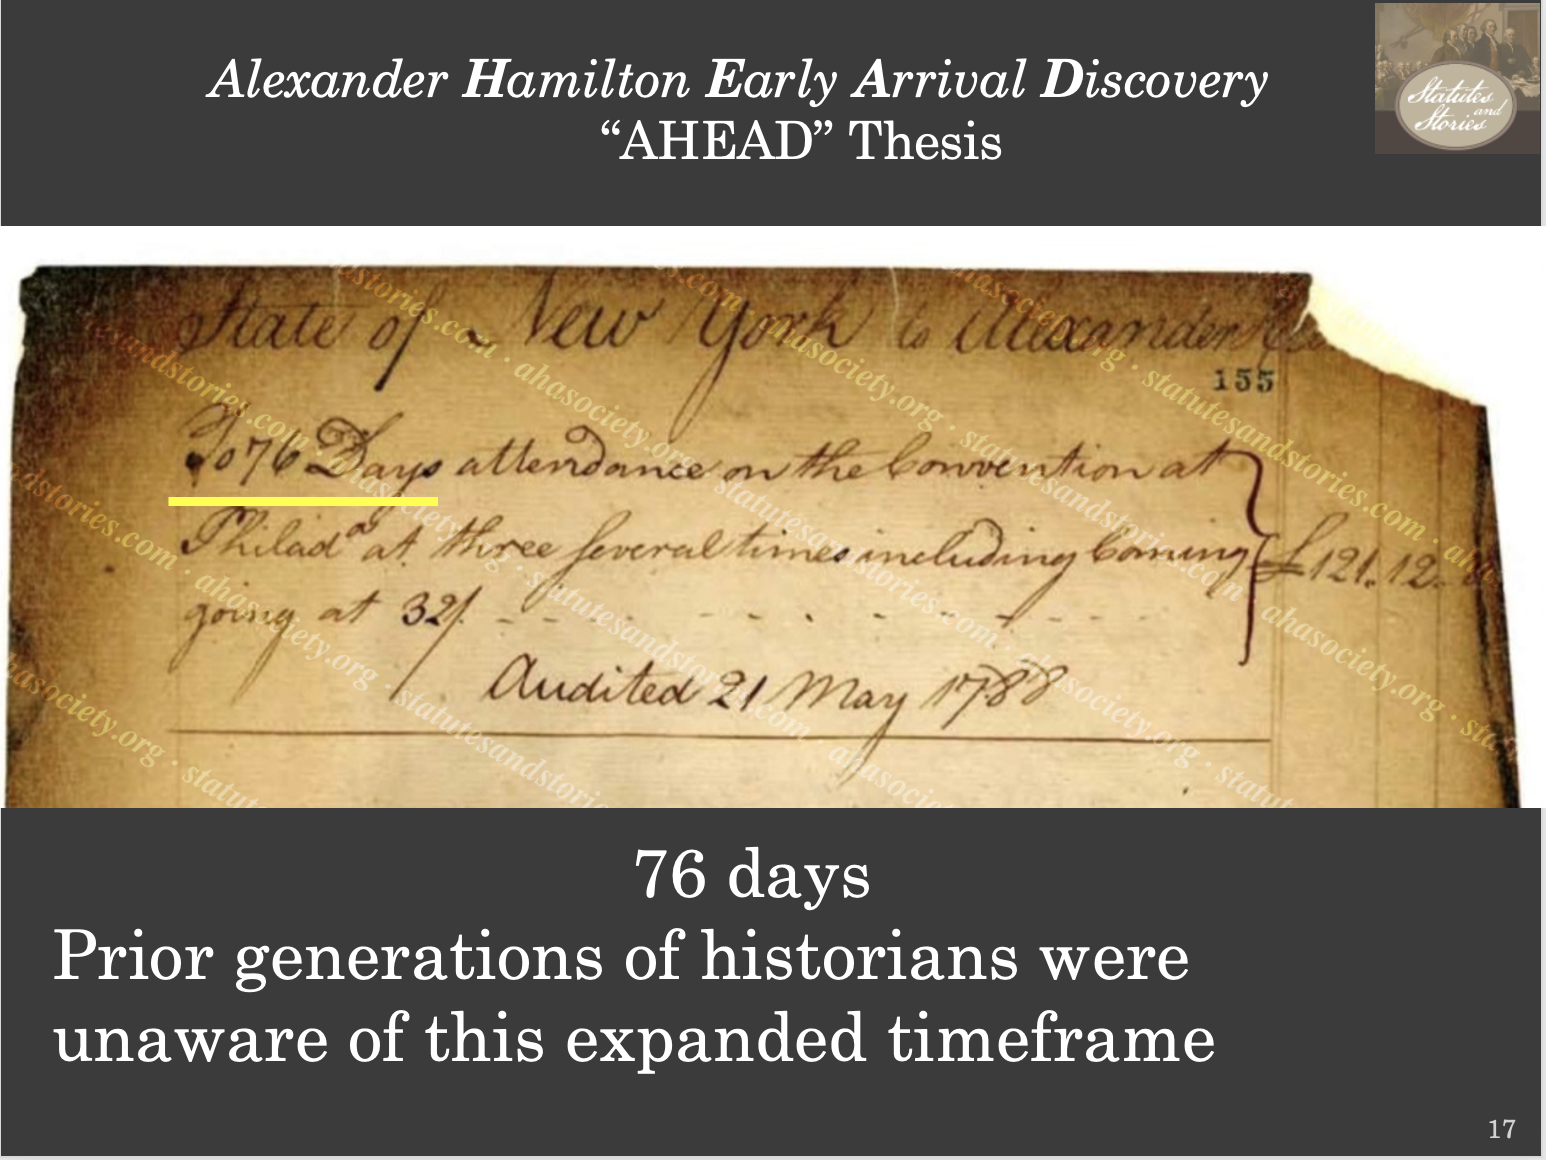 Alexander Hamilton Early Arrival Discovery
“AHEAD” Thesis
Statutes
and
Stories
State of New York to Alexander
155
To 76 Days attendance on the Convention at
Philadª at three several times including Coming
going at 32/
£121.12.
Audited 21 May 1788
statutesandstories.com · ahasociety.org · statutesandstories.com · ahasociety.org
76 days
Prior generations of historians were
unaware of this expanded timeframe
17